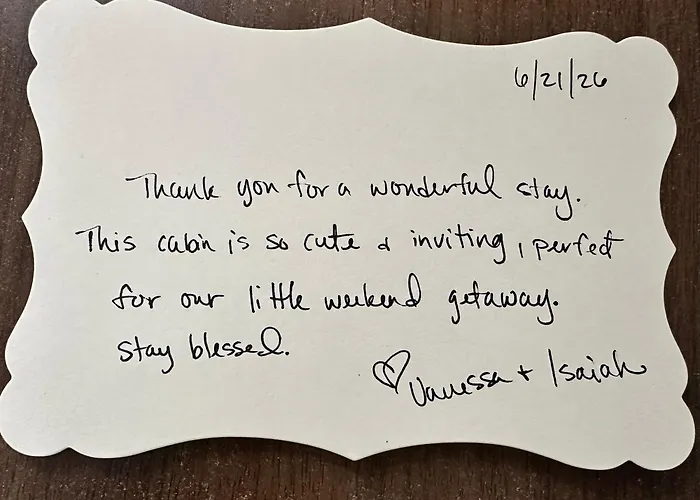 6/21/26
Thank you for a wonderful stay.
This cabin is so cute & inviting, perfect
for our little weekend getaway.
Stay blessed.
♡ Vanessa + Isaiah